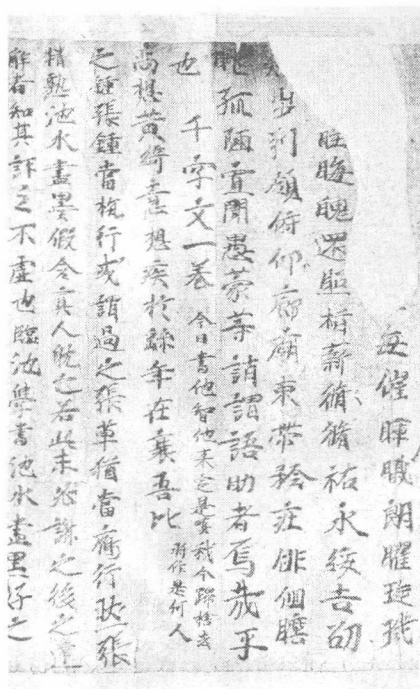 每催暉曦朗曜琁璣
晦魄還照指薪脩脩祐永綏吉劭
步引領俯仰廊廟束帶矜莊俳佪瞻
眺孤陋寡聞愚蒙等誚謂語助者焉哉乎
也 千字文一卷 今日書他智他來定是實我今歸捨去
將作是何人
尚想黃綺意想疾於繇年在襄吾比
之鍾張鍾當抗行或謂過之張草猶當鴈行然張
精熟池水盡墨假令寡人耽之若此未必謝之後之達
解者知其評之不虛也臨池學書池水盡墨好之